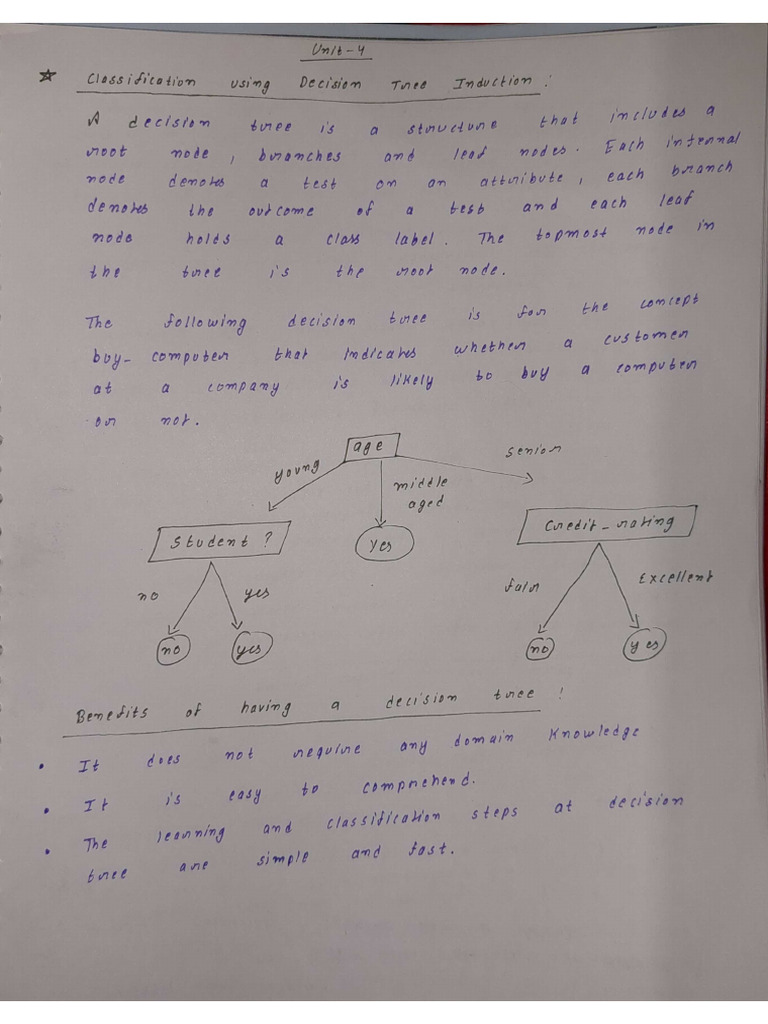 Unit-4
☆ Classification using Decision Tree Induction:
A decision tree is a structure that includes a
root node, branches and leaf nodes. Each internal
node denotes a test on an attribute, each branch
denotes the outcome of a test and each leaf
node holds a class label. The topmost node in
the tree is the root node.
The following decision tree is for the concept
buy-computer that indicates whether a customer
at a company is likely to buy a computer
or not.
age
young
middle aged
senior
Student ?
yes
credit-rating
no
yes
fair
Excellent
no
yes
no
yes
Benefits of having a decision tree:
• It does not require any domain knowledge
• It is easy to comprehend.
• The learning and classification steps at decision
tree are simple and fast.